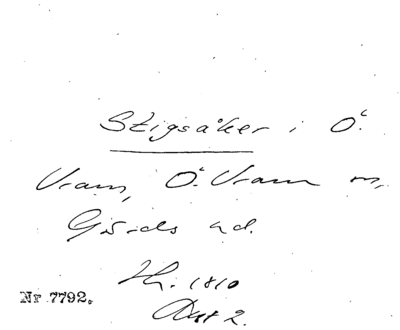 Stigsåker i Ö.
Vram, Ö. Vram sn,
Gärds hd.
Sk. 1810
Akt 2.
Nr 7792.